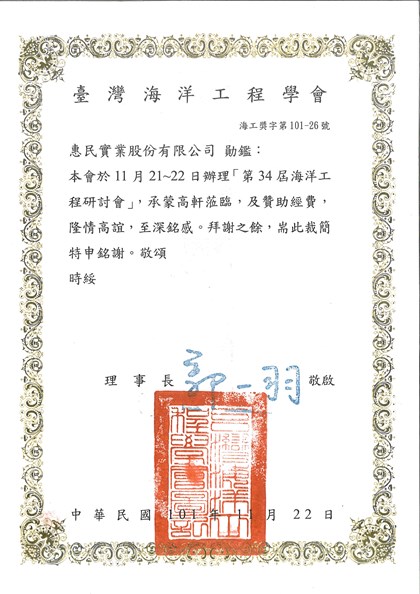 臺灣海洋工程學會
海工獎字第101-26號
惠民實業股份有限公司 勛鑑：
本會於11月21~22日辦理「第34屆海洋工
程研討會」，承蒙高軒蒞臨，及贊助經費，
隆情高誼，至深銘感。拜謝之餘，耑此裁簡
特申銘謝。敬頌
時綏
理事長 郭一羽 敬啟
中華民國 101 年 11 月 22 日